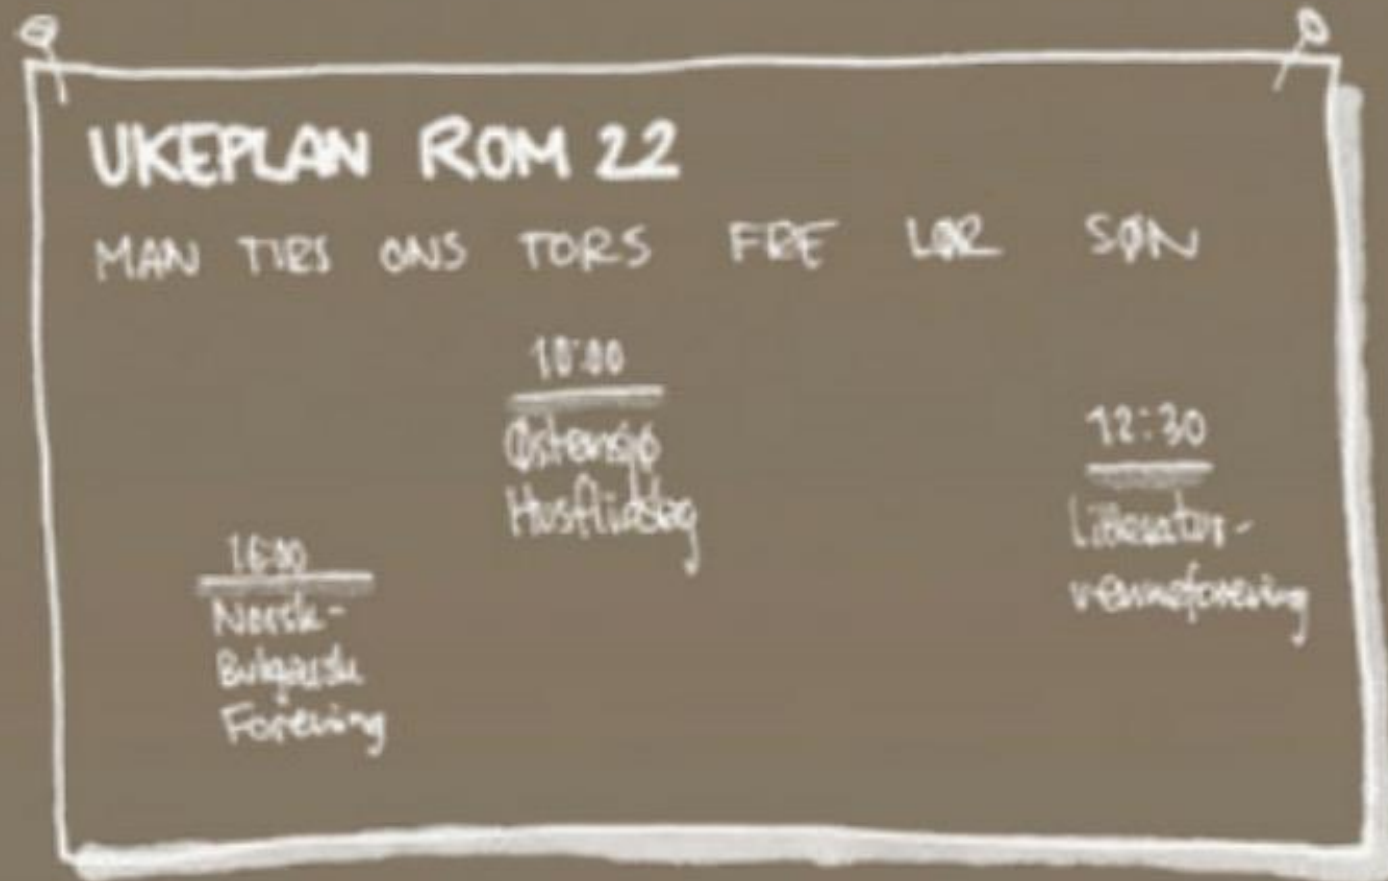 UKEPLAN ROM 22
MAN TIRS ONS TORS FRE LØR SØN
10:00
Østensjø
Husflidslag
12:30
Litteratur-
venneforening
16:00
Norsk-
Bulgarsk
Forening